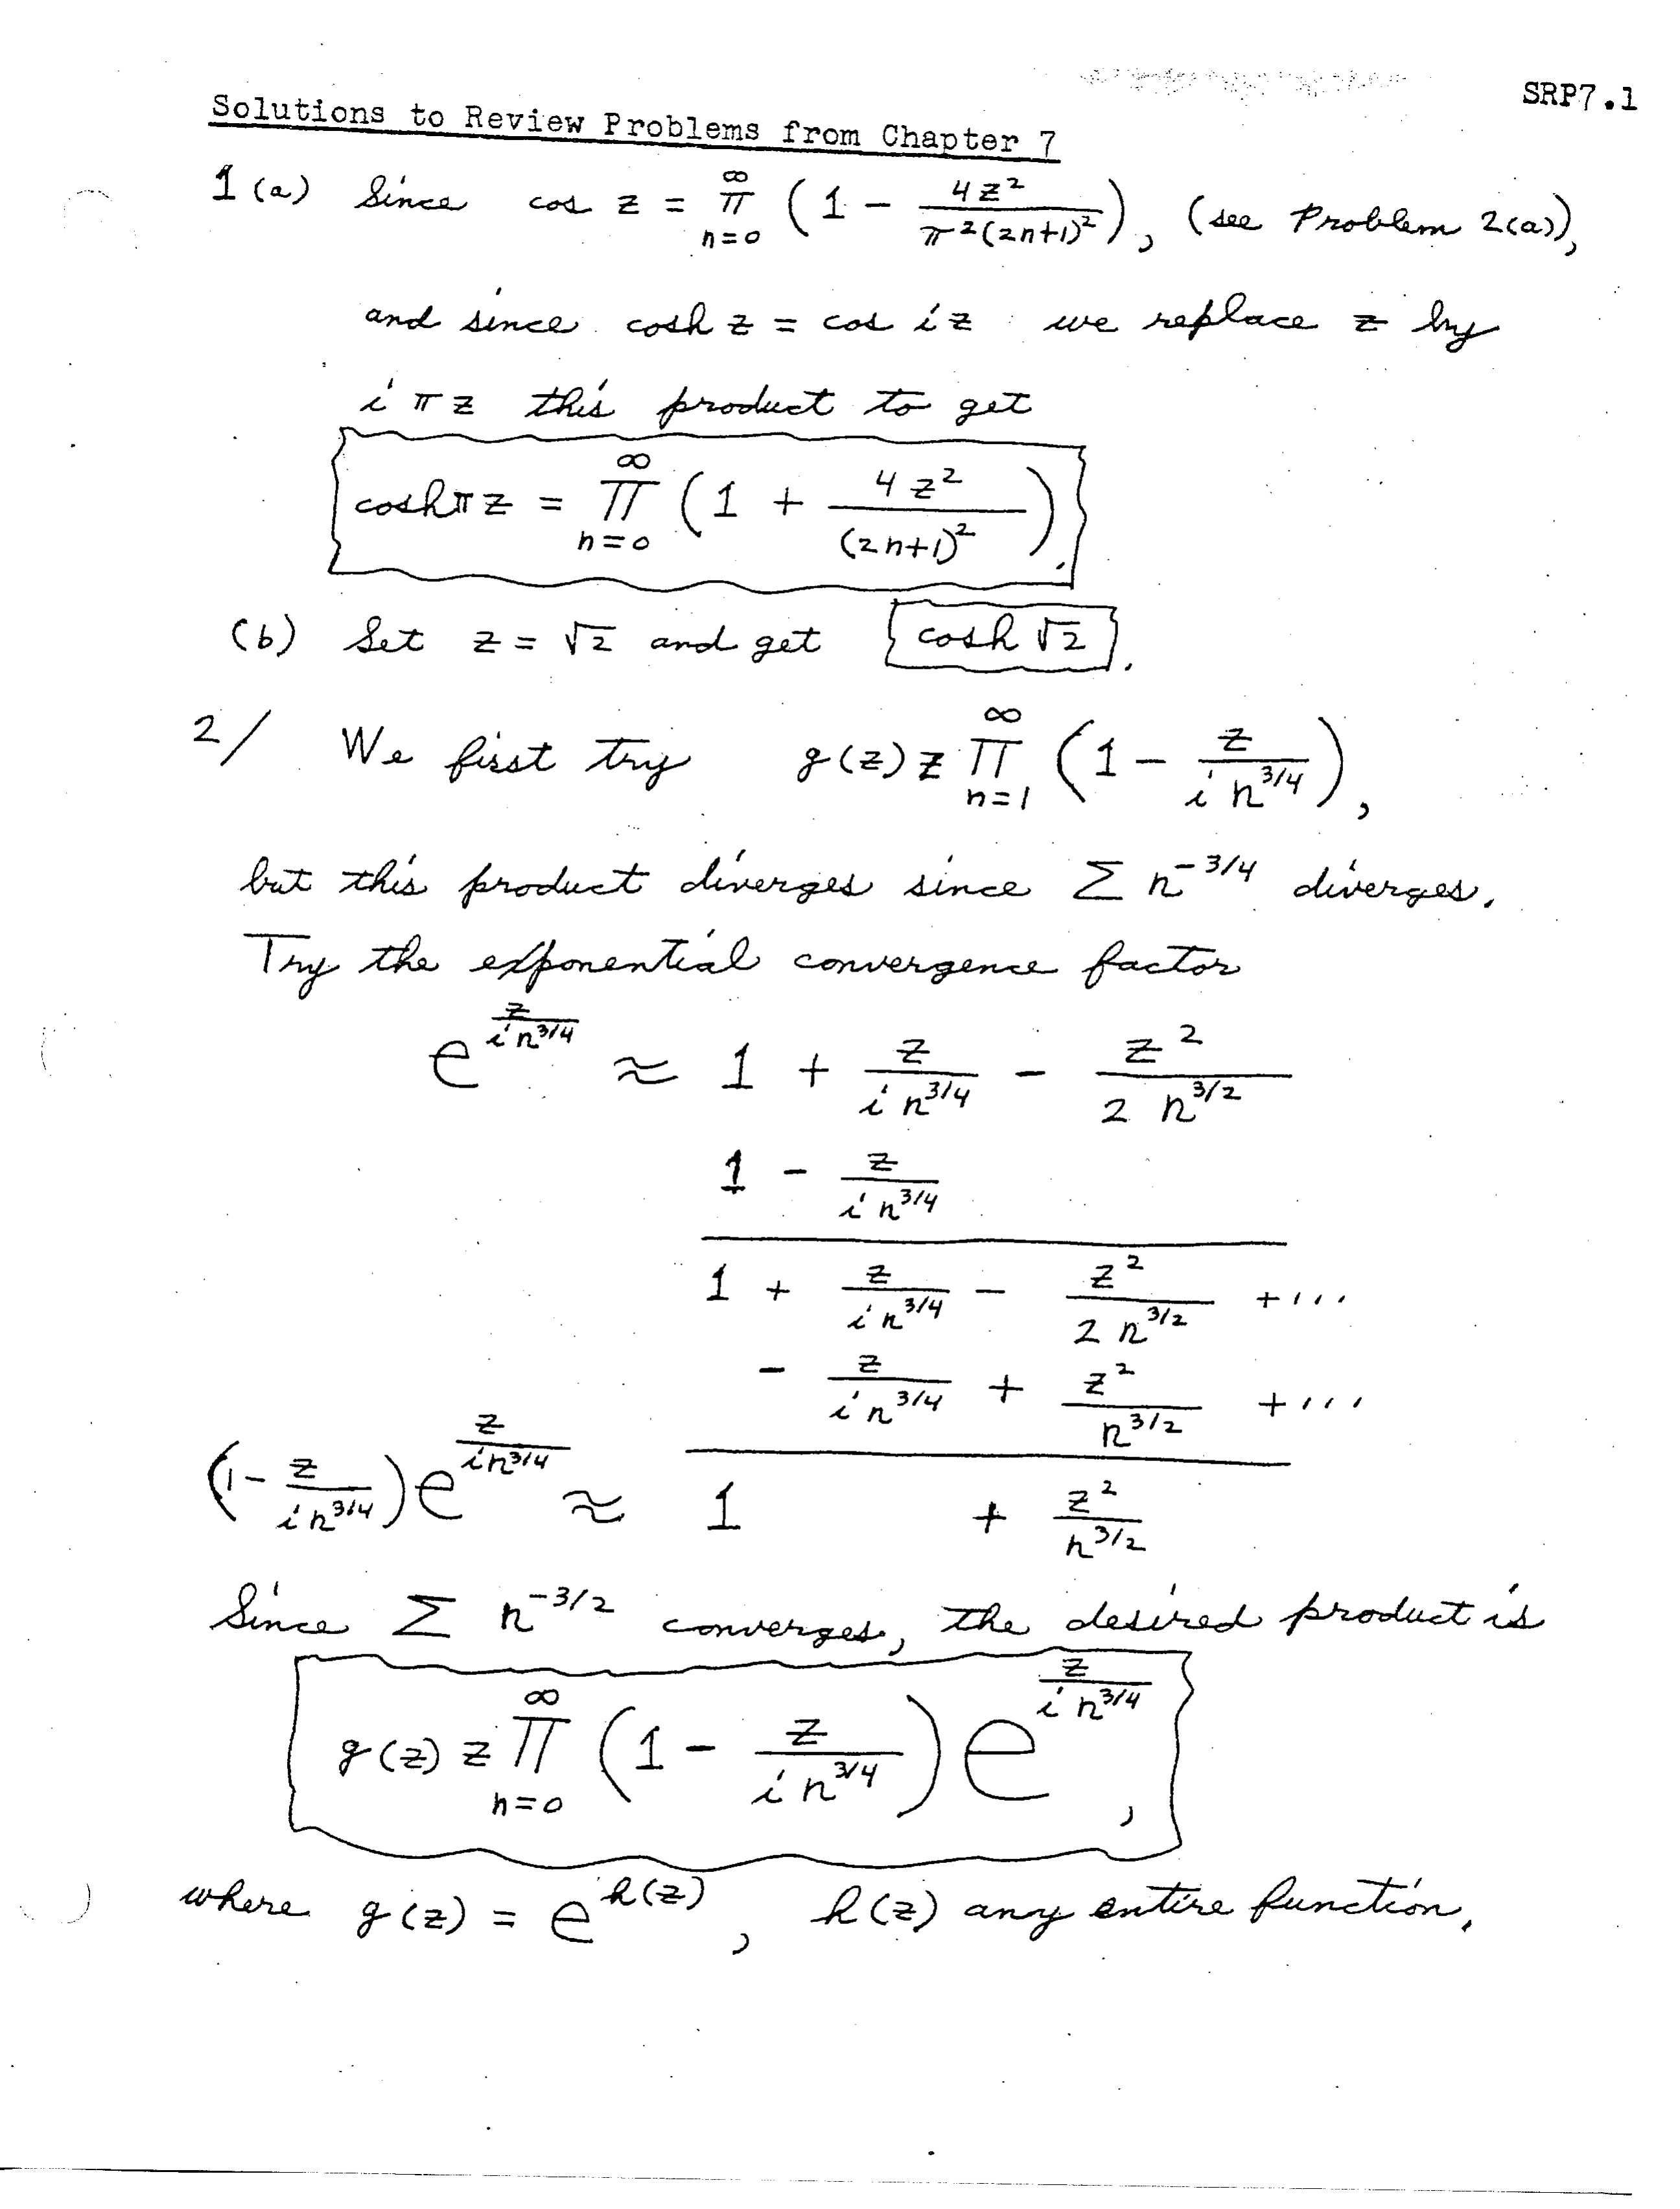 SRP7.1
Solutions to Review Problems from Chapter 7
1 (a) Since cos z = ∞ π n=0 (1 - 4z²/π²(2n+1)²), (see Problem 2(a)),
and since cosh z = cos iz we replace z by
i π z this product to get
cosh π z = ∞ π n=0 (1 + 4z²/(2n+1)²).
(b) Set z = √2 and get cosh √2.
2/ We first try g(z) z ∞ π n=1 (1 - z/(i n^{3/4})),
but this product diverges since Σ n^{-3/4} diverges.
Try the exponential convergence factor
e^{z/(i n^{3/4})} ≈ 1 + z/(i n^{3/4}) - z²/(2 n^{3/2})
1 - z/(i n^{3/4})
1 + z/(i n^{3/4}) - z²/(2 n^{3/2}) + ...
- z/(i n^{3/4}) + z²/n^{3/2} + ...
(1 - z/(i n^{3/4})) e^{z/(i n^{3/4})} ≈ 1 + z²/n^{3/2}
Since Σ n^{-3/2} converges, the desired product is
g(z) z ∞ π n=0 (1 - z/(i n^{3/4})) e^{z/(i n^{3/4})},
where g(z) = e^{h(z)}, h(z) any entire function.